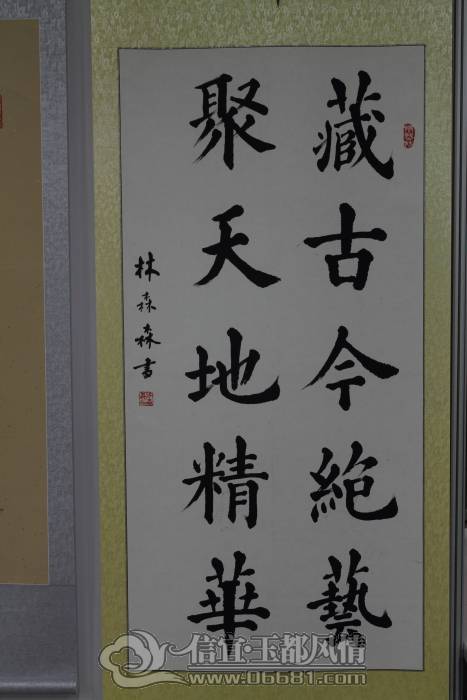 藏古今絕藝
聚天地精華
林森森書
信宜·玉都风情
www.06681.com